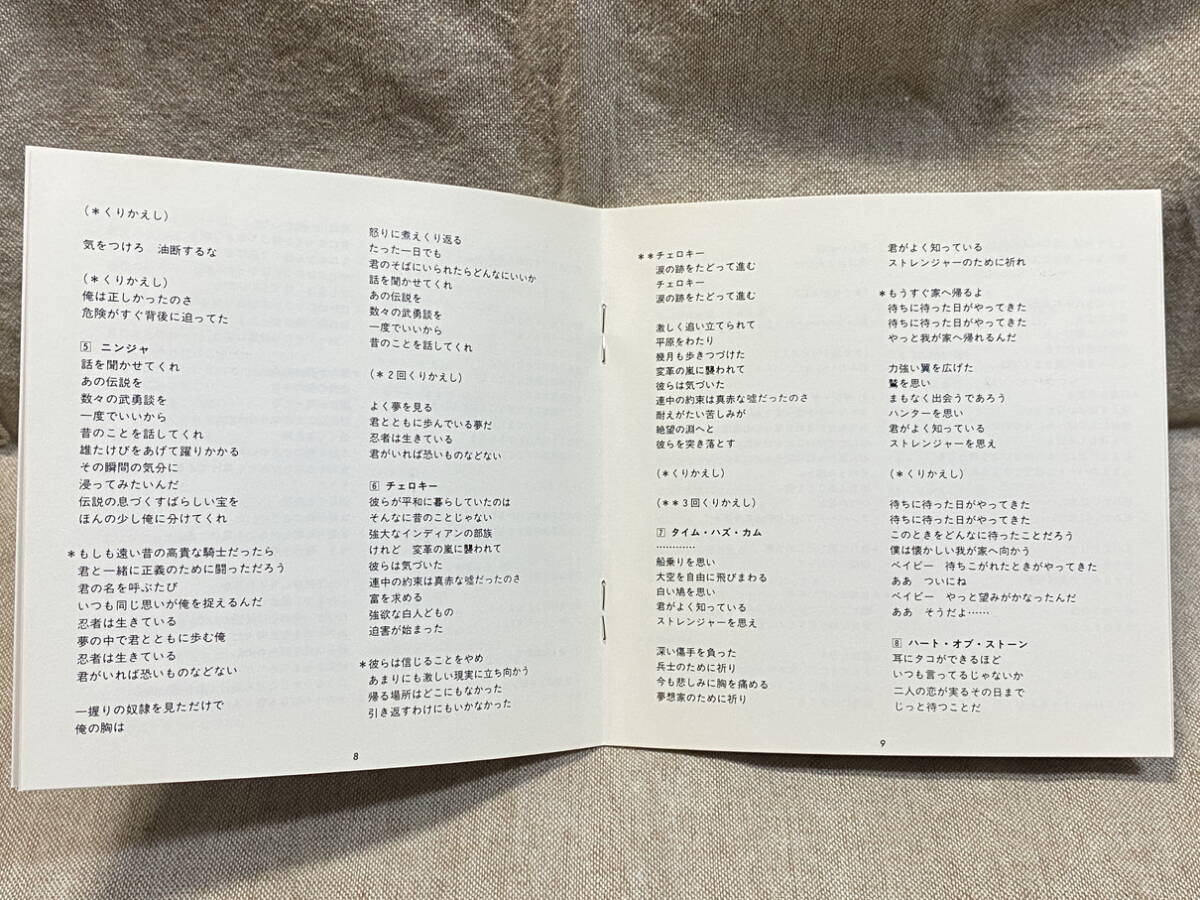 (＊くりかえし)
気をつけろ　油断するな
(＊くりかえし)
俺は正しかったのさ
危険がすぐ背後に迫ってた
5 ニンジャ
話を聞かせてくれ
あの伝説を
数々の武勇談を
一度でいいから
昔のことを話してくれ
雄たけびをあげて躍りかかる
その瞬間の気分に
浸ってみたいんだ
伝説の息づくすばらしい宝を
ほんの少し俺に分けてくれ
＊もしも遠い昔の高貴な騎士だったら
君と一緒に正義のために闘っただろう
君の名を呼ぶたび
いつも同じ思いが俺を捉えるんだ
忍者は生きている
夢の中で君とともに歩む俺
忍者は生きている
君がいれば恐いものなどない
一握りの奴隷を見ただけで
俺の胸は
怒りに煮えくり返る
たった一日でも
君のそばにいられたらどんなにいいか
話を聞かせてくれ
あの伝説を
数々の武勇談を
一度でいいから
昔のことを話してくれ
(＊2回くりかえし)
よく夢を見る
君とともに歩んでいる夢だ
忍者は生きている
君がいれば恐いものなどない
6 チェロキー
彼らが平和に暮らしていたのは
そんなに昔のことじゃない
強大なインディアンの部族
けれど　変革の嵐に襲われて
彼らは気づいた
連中の約束は真赤な嘘だったのさ
富を求める
強欲な白人どもの
迫害が始まった
＊彼らは信じることをやめ
あまりにも激しい現実に立ち向かう
帰る場所はどこにもなかった
引き返すわけにもいかなかった
8
＊＊チェロキー
涙の跡をたどって進む
チェロキー
涙の跡をたどって進む
激しく追い立てられて
平原をわたり
幾月も歩きつづけた
変革の嵐に襲われて
彼らは気づいた
連中の約束は真赤な嘘だったのさ
耐えがたい苦しみが
絶望の淵へと
彼らを突き落とす
(＊くりかえし)
(＊＊3回くりかえし)
7 タイム・ハズ・カム
…………
船乗りを思い
大空を自由に飛びまわる
白い鳩を思い
君がよく知っている
ストレンジャーを思え
深い傷手を負った
兵士のために祈り
今も悲しみに胸を痛める
夢想家のために祈り
君がよく知っている
ストレンジャーのために祈れ
＊もうすぐ家へ帰るよ
待ちに待った日がやってきた
待ちに待った日がやってきた
やっと我が家へ帰れるんだ
力強い翼を広げた
鷲を思い
まもなく出会うであろう
ハンターを思い
君がよく知っている
ストレンジャーを思え
(＊くりかえし)
待ちに待った日がやってきた
待ちに待った日がやってきた
このときをどんなに待ったことだろう
僕は懐かしい我が家へ向かう
ベイビー　待ちこがれたときがやってきた
ああ　ついにね
ベイビー　やっと望みがかなったんだ
ああ　そうだよ……
8 ハート・オブ・ストーン
耳にタコができるほど
いつも言ってるじゃないか
二人の恋が実るその日まで
じっと待つことだ
9